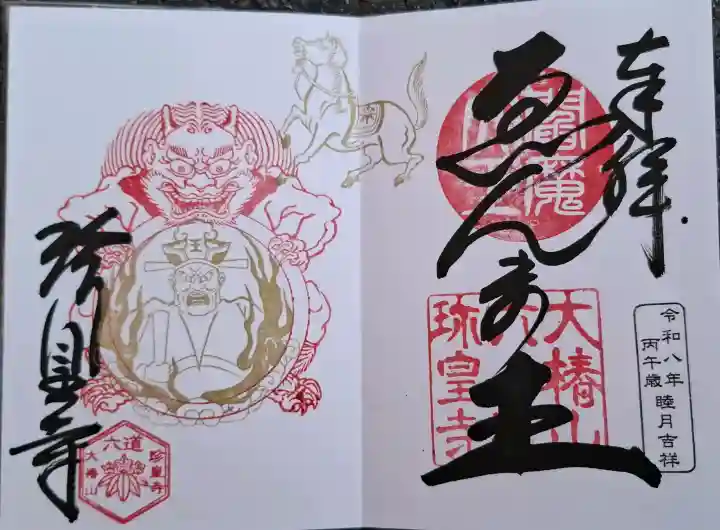 奉拝
ゑんま王
閻魔
大椿山
六
珎皇寺
令和八年睦月吉祥
丙午歳
珍皇寺
王
六道
大椿山
珍皇寺